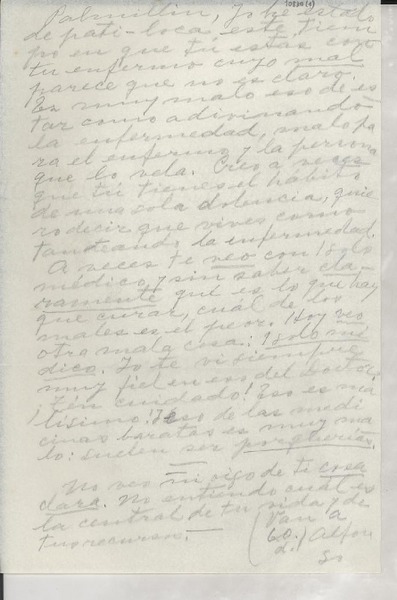 Palmillin, Yo he estado
de pati-loca este tiem
po en que tú estás con
tu enfermo cuyo mal
parece que no es claro.
Es muy malo eso de es
tar como adivinando
la enfermedad, malo pa
ra el enfermo y la persona
que lo vela. Creo a veces
que tú tienes el hábito
de una sola dolencia, quie
ro decir que vives como
tanteando la enfermedad.
A veces te veo con 1 solo
médico y sin saber cla-
ramente qué es lo que hay
que curar, cuál de los
males es el peor. Hoy veo
otra mala cosa: 1 solo mé
dico. Yo te vi siempre
muy fiel en eso del Doct.
¡Ten cuidado! Eso es ma
lísimo! Y eso de las medi
cinas baratas es muy ma
lo: suelen ser porquerías.
No veo ni oigo de ti cosa
clara. No entiendo cuál es
la central de tu vida y de
tus recursos.
(Van a
60 d.) Alfon
so